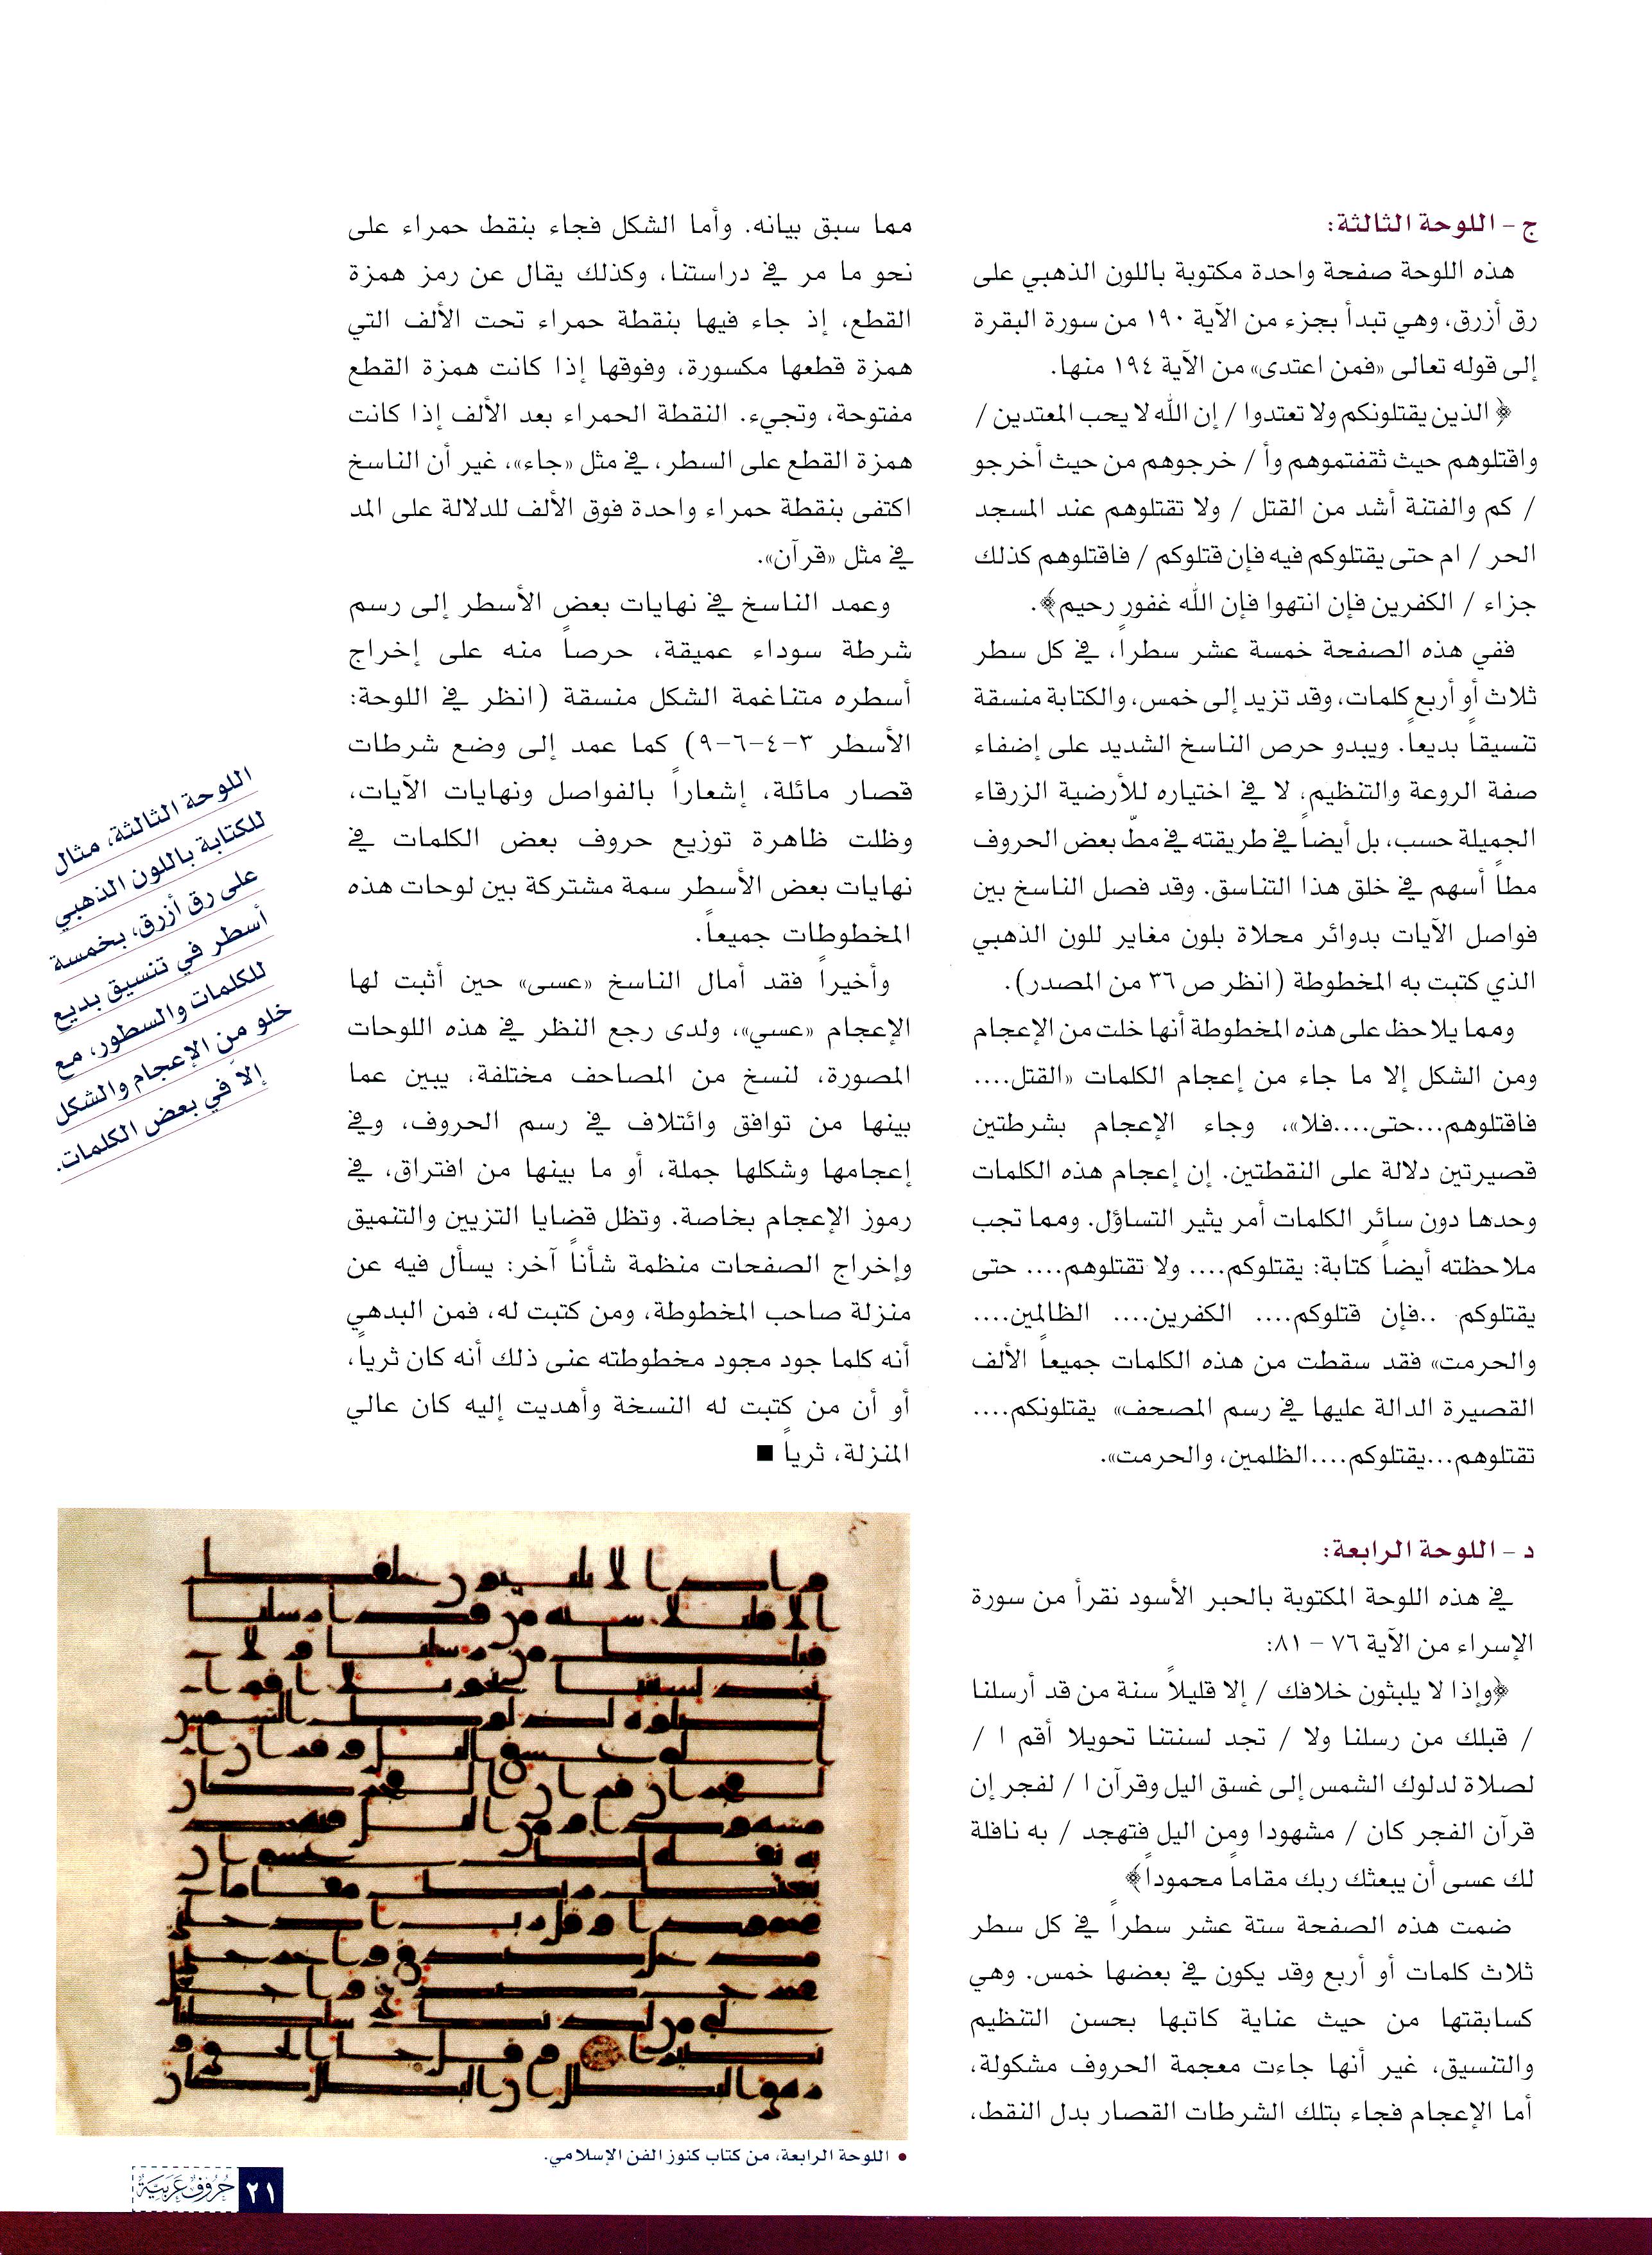 ج - اللوحة الثالثة:
هذه اللوحة صفحة واحدة مكتوبة باللون الذهبي على
رق أزرق، وهي تبدأ بجزء من الآية ١٩٠ من سورة البقرة
إلى قوله تعالى «فمن اعتدى» من الآية ١٩٤ منها.
﴿الذين يقتلونكم ولا تعتدوا / إن الله لا يحب المعتدين /
واقتلوهم حيث ثقفتموهم وأ / خرجوهم من حيث أخرجو
/ كم والفتنة أشد من القتل / ولا تقتلوهم عند المسجد
الحر / ام حتى يقتلوكم فيه فإن قتلوكم / فاقتلوهم كذلك
جزاء / الكفرين فإن انتهوا فإن الله غفور رحيم﴾.
ففي هذه الصفحة خمسة عشر سطراً، في كل سطر
ثلاث أو أربع كلمات، وقد تزيد إلى خمس، والكتابة منسقة
تنسيقاً بديعاً. ويبدو حرص الناسخ الشديد على إضفاء
صفة الروعة والتنظيم، لا في اختياره للأرضية الزرقاء
الجميلة حسب، بل أيضاً في طريقته في مطّ بعض الحروف
مطاً أسهم في خلق هذا التناسق. وقد فصل الناسخ بين
فواصل الآيات بدوائر محلاة بلون مغاير للون الذهبي
الذي كتبت به المخطوطة (انظر ص ٣٦ من المصدر).
ومما يلاحظ على هذه المخطوطة أنها خلت من الإعجام
ومن الشكل إلا ما جاء من إعجام الكلمات «القتل....
فاقتلوهم...حتى....فلا»، وجاء الإعجام بشرطتين
قصيرتين دلالة على النقطتين. إن إعجام هذه الكلمات
وحدها دون سائر الكلمات أمر يثير التساؤل. ومما تجب
ملاحظته أيضاً كتابة: يقتلوكم.... ولا تقتلوهم.... حتى
يقتلوكم ..فإن قتلوكم.... الكفرين.... الظالمين....
والحرمت» فقد سقطت من هذه الكلمات جميعاً الألف
القصيرة الدالة عليها في رسم المصحف» يقتلونكم....
تقتلوهم...يقتلوكم....الظلمين، والحرمت».
د - اللوحة الرابعة:
في هذه اللوحة المكتوبة بالحبر الأسود نقرأ من سورة
الإسراء من الآية ٧٦ - ٨١:
﴿وإذا لا يلبثون خلافك / إلا قليلاً سنة من قد أرسلنا
/ قبلك من رسلنا ولا / تجد لسنتنا تحويلا أقم ا /
لصلاة لدلوك الشمس إلى غسق اليل وقرآن ا / لفجر إن
قرآن الفجر كان / مشهودا ومن اليل فتهجد / به نافلة
لك عسى أن يبعثك ربك مقاماً محموداً﴾
ضمت هذه الصفحة ستة عشر سطراً في كل سطر
ثلاث كلمات أو أربع وقد يكون في بعضها خمس. وهي
كسابقتها من حيث عناية كاتبها بحسن التنظيم
والتنسيق، غير أنها جاءت معجمة الحروف مشكولة،
أما الإعجام فجاء بتلك الشرطات القصار بدل النقط،
مما سبق بيانه. وأما الشكل فجاء بنقط حمراء على
نحو ما مر في دراستنا، وكذلك يقال عن رمز همزة
القطع، إذ جاء فيها بنقطة حمراء تحت الألف التي
همزة قطعها مكسورة، وفوقها إذا كانت همزة القطع
مفتوحة، وتجيء. النقطة الحمراء بعد الألف إذا كانت
همزة القطع على السطر، في مثل «جاء»، غير أن الناسخ
اكتفى بنقطة حمراء واحدة فوق الألف للدلالة على المد
في مثل «قرآن».
وعمد الناسخ في نهايات بعض الأسطر إلى رسم
شرطة سوداء عميقة، حرصاً منه على إخراج
أسطره متناغمة الشكل منسقة (انظر في اللوحة:
الأسطر ٣-٤-٦-٩) كما عمد إلى وضع شرطات
قصار مائلة، إشعاراً بالفواصل ونهايات الآيات،
وظلت ظاهرة توزيع حروف بعض الكلمات في
نهايات بعض الأسطر سمة مشتركة بين لوحات هذه
المخطوطات جميعاً.
وأخيراً فقد أمال الناسخ «عسى» حين أثبت لها
الإعجام «عسي»، ولدى رجع النظر في هذه اللوحات
المصورة، لنسخ من المصاحف مختلفة، يبين عما
بينها من توافق وائتلاف في رسم الحروف، وفي
إعجامها وشكلها جملة، أو ما بينها من افتراق، في
رموز الإعجام بخاصة. وتظل قضايا التزيين والتنميق
وإخراج الصفحات منظمة شأناً آخر: يسأل فيه عن
منزلة صاحب المخطوطة، ومن كتبت له، فمن البدهي
أنه كلما جود مجود مخطوطته عنى ذلك أنه كان ثرياً،
أو أن من كتبت له النسخة وأهديت إليه كان عالي
المنزلة، ثرياً ■
اللوحة الثالثة، مثال
للكتابة باللون الذهبي
على رق أزرق، بخمسة
أسطر في تنسيق بديع
للكلمات والسطور، مع
خلو من الإعجام والشكل
إلاّ في بعض الكلمات.
• اللوحة الرابعة، من كتاب كنوز الفن الإسلامي.
٢١ حُرُوفٌ عَرَبِيَّةٌ